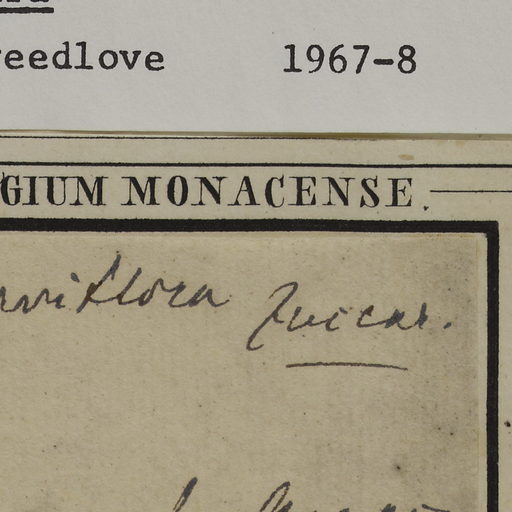 reedlove 1967-8
GIUM MONACENSE.
arviflora Zuccar.